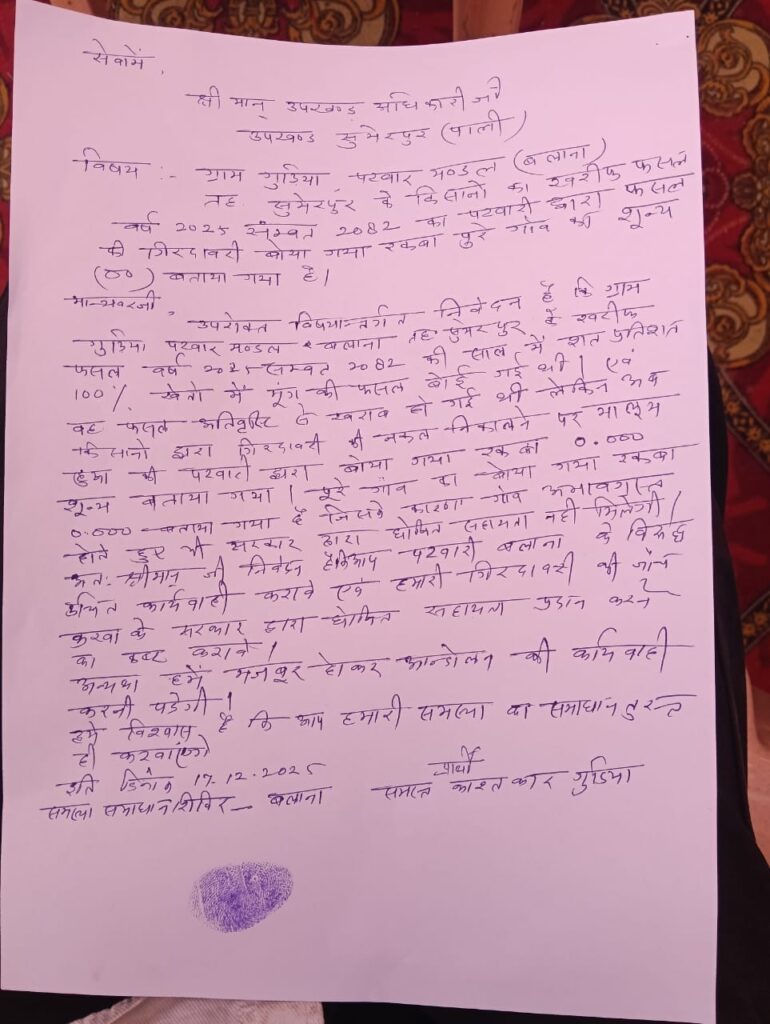 सेवामें,
श्री मान् उपखण्ड अधिकारी जी
उपखण्ड सुमेरपुर (पाली)
विषय :- ग्राम गुडिया पटवार मण्डल (बलाना)
तह. सुमेरपुर के किसानों का खरीफ फसल
वर्ष 2025 संम्वत 2082 का पटवारी द्वारा फसल
की गिरदावरी बोया गया रकबा पुरे गाँव की शून्य
(00) बताया गया है।
मान्यवरजी,
उपरोक्त विषयान्तर्गत निवेदन है कि ग्राम
गुडिया पटवार मण्डल बलाना तह सुमेरपुर के खरीफ
फसल वर्ष 2025 सम्वत 2082 की साल में शत प्रतिशत
100% खेतो में मूंग की फसल बोई गई थी। एवं
वह फसल अतिवृष्टि से खराब हो गई थी लेकिन अब
किसानो द्वारा गिरदावरी की नकल निकालने पर मालूम
हुआ की पटवारी द्वारा बोया गया रकबा 0.000
शून्य बताया गया। पूरे गांव का बोया गया रकबा
0.000 बताया गया है जिसके कारण गाँव अभावग्रस्त
होते हुए भी सरकार द्वारा घोषित सहायता नही मिलेगी।
अतः श्रीमान जी निवेदन है कि आप पटवारी बलाना के विरुद्ध
उचित कार्यवाही करावे एवं हमारी गिरदावरी की जाँच
करवा के सरकार द्वारा घोषित सहायता प्रदान करने
का कष्ट करावे।
अन्यथा हमें मजबूर होकर आन्दोलन की कार्यवाही
करनी पडेगी।
हमे विश्वास है कि आप हमारी समस्या का समाधान तुरन्त
ही करवाएंगे
इति दिनांक 17.12.2025
प्रार्थी
समस्या समाधान शिविर - बलाना समस्त काश्तकार गुडिया